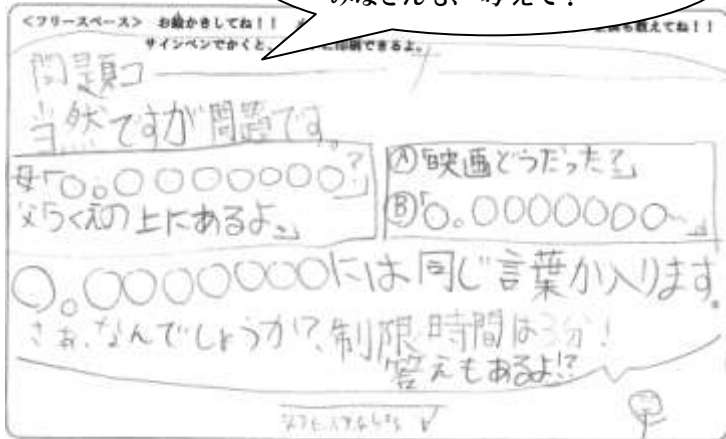 みなさんも、考えて！
<フリースペース> お絵かきしてね！！
教えてね！！
サインペンでかくと、
に印刷できるよ。
問題コーナー
当然ですが問題です。
母「○。○○○○○○○?」
父「つくえの上にあるよ。」
Ⓐ「映画どうだった?」
Ⓑ「○。○○○○○○○~。」
○。○○○○○○○には同じ言葉が入ります。
さぁ、なんでしょうか!?制限時間は3分!
答えもあるよ!?